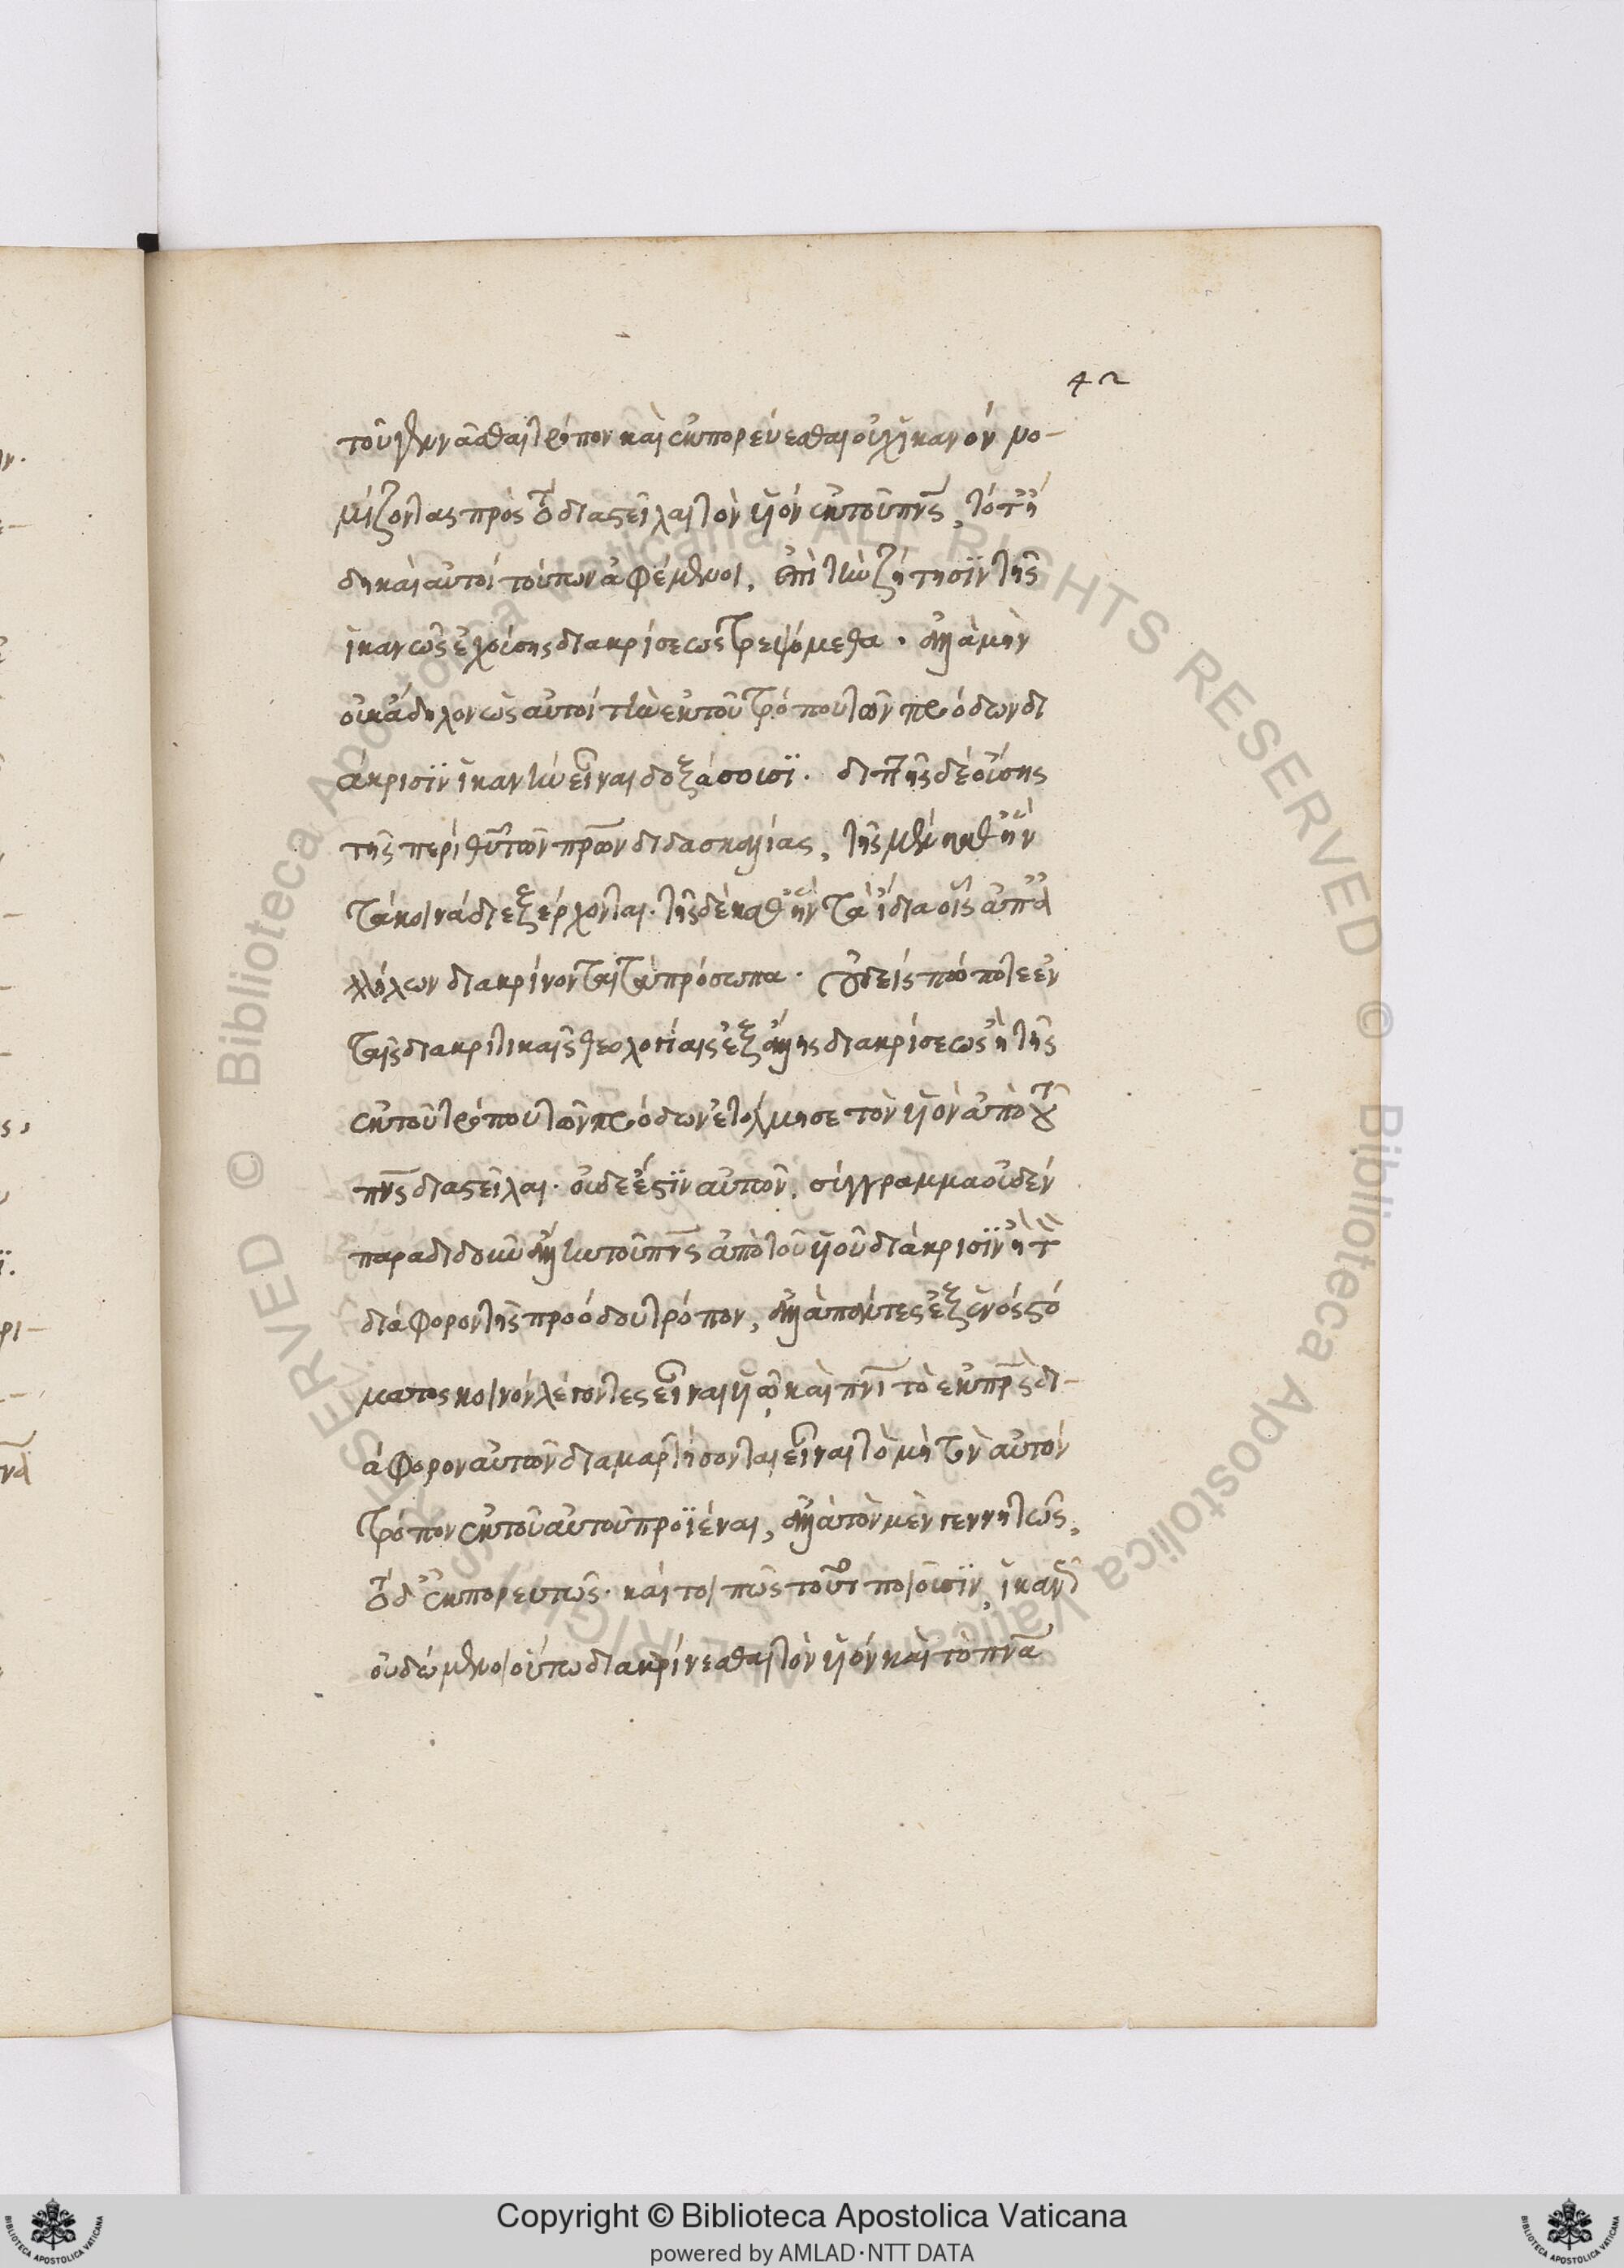 42
τοῦ γεννᾶσθαι τρόπον καὶ ἐκπορεύεσθαι οὐχ ἱκανὸν νο-
μίζοντας πρὸς τὸ διαστεῖλαι τὸν υἱὸν ἐκ τοῦ πνς, τότ' ἤ
δη καὶ αὐτοὶ τούτων ἀφέμενοι, ἐπὶ τὴν ζήτησϊν τῆς
ἱκανῶς ἐχούσης διακρίσεως τρεψόμεθα. ἀλλὰ μὴν
οὐκ ἄδηλον ὡς αὐτοὶ τὴν ἐκ τοῦ τρόπου τῶν προόδων δι
άκρισϊν ἱκανὴν εἶναι δοξάσουσϊ. διττῆς δὲ οὔσης
τῆς περὶ θυ τῶν πρων διδασκαλίας, τῆς μὲν καθ' ἣν
τὰ κοινὰ διεξέρχονται. τῆς δὲ καθ' ἣν τὰ ἴδια οἷς ἀπ' ἀ
λλήλων διακρίνονται τὰ πρόσωπα. οὐδεὶς πώποτε ἐν
ταῖς διακριτικαῖς θεολογίαις ἐξ ἄλλης διακρίσεως ἢ τῆς
ἐκ τοῦ τρόπου τῶν προόδων ἐτόλμησε τὸν υἱὸν ἀπὸ τοῦ
πνς διαστεῖλαι. οὐδέ ἐστϊν αὐτῶν, σύγγραμμα οὐδὲν
παραδιδοὺν ἄλλην τοῦ πνς ἀπὸ τοῦ υἱοῦ διάκρισϊν ἢ τὸν
διάφορον τῆς προόδου τρόπον, ἀλλὰ πάντες ἐξ ἑνὸς στό
ματος κοινὸν λέγοντες εἶναι υἱῷ καὶ πνι τὸ ἐκ πρς δι-
άφορον αὐτῶν διαμαρτήσονται εἶναι τὸ μὴ τὸν αὐτὸν
τρόπον ἐκ τοῦ αὐτοῦ προϊέναι, ἀλλὰ τὸν μὲν γεννητῶς,
τὸ δ' ἐκπορευτῶς. καί τοι πῶς τοῦτο ποιοῦσϊν, ἱκανῶς
οὐδώμενοι οὕτω διακρίνεσθαι τὸν υἱὸν καὶ τὸ πνα